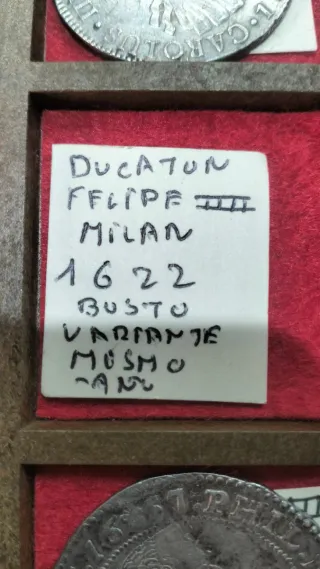 CAROLUS III
DUCATON
FELIPE IIII
MILAN
1622
BUSTO
VARIANTE
MISMO
-AÑO
1657 PHIL